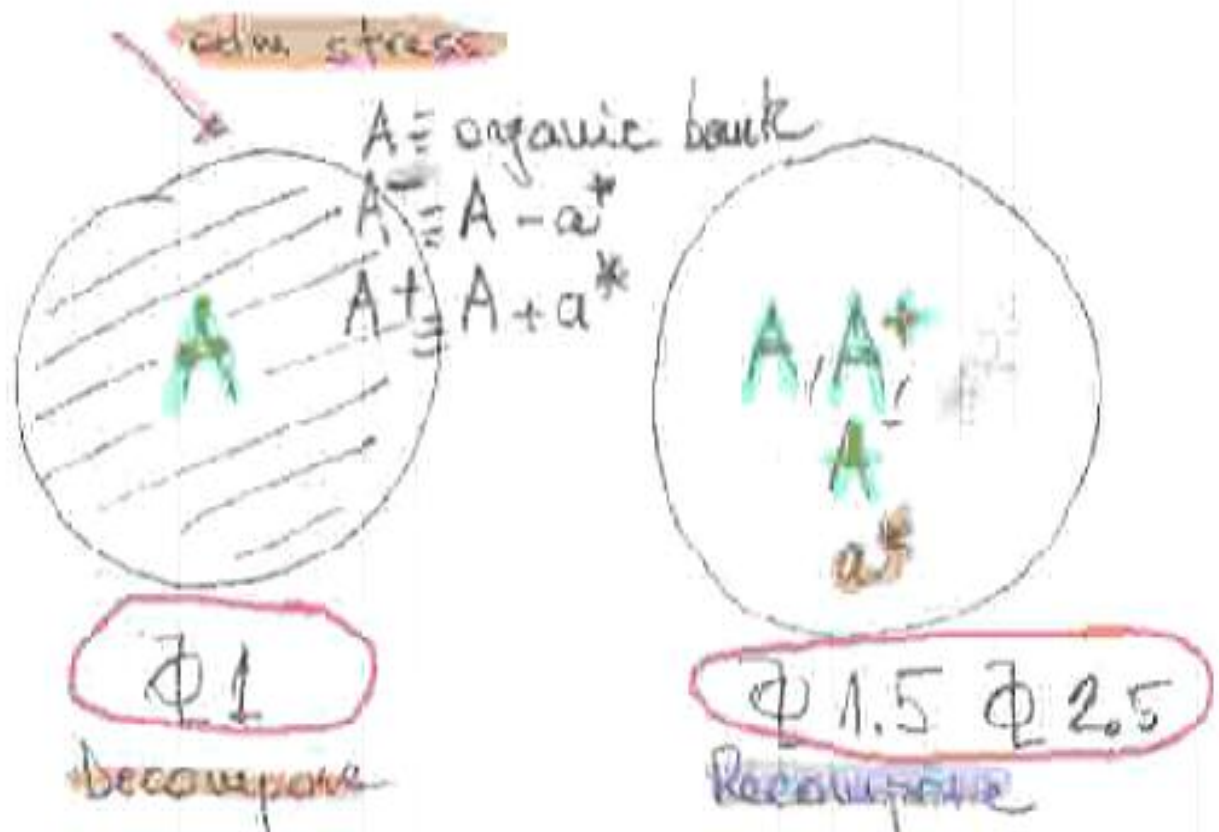 stress
A ≡ organic bank
A⁻ ≡ A - a*
A⁺ ≡ A + a*
A
A, A⁺,
A⁻
a*
Φ 1
Φ 1.5 Φ 2.5
Decompose
Recompose